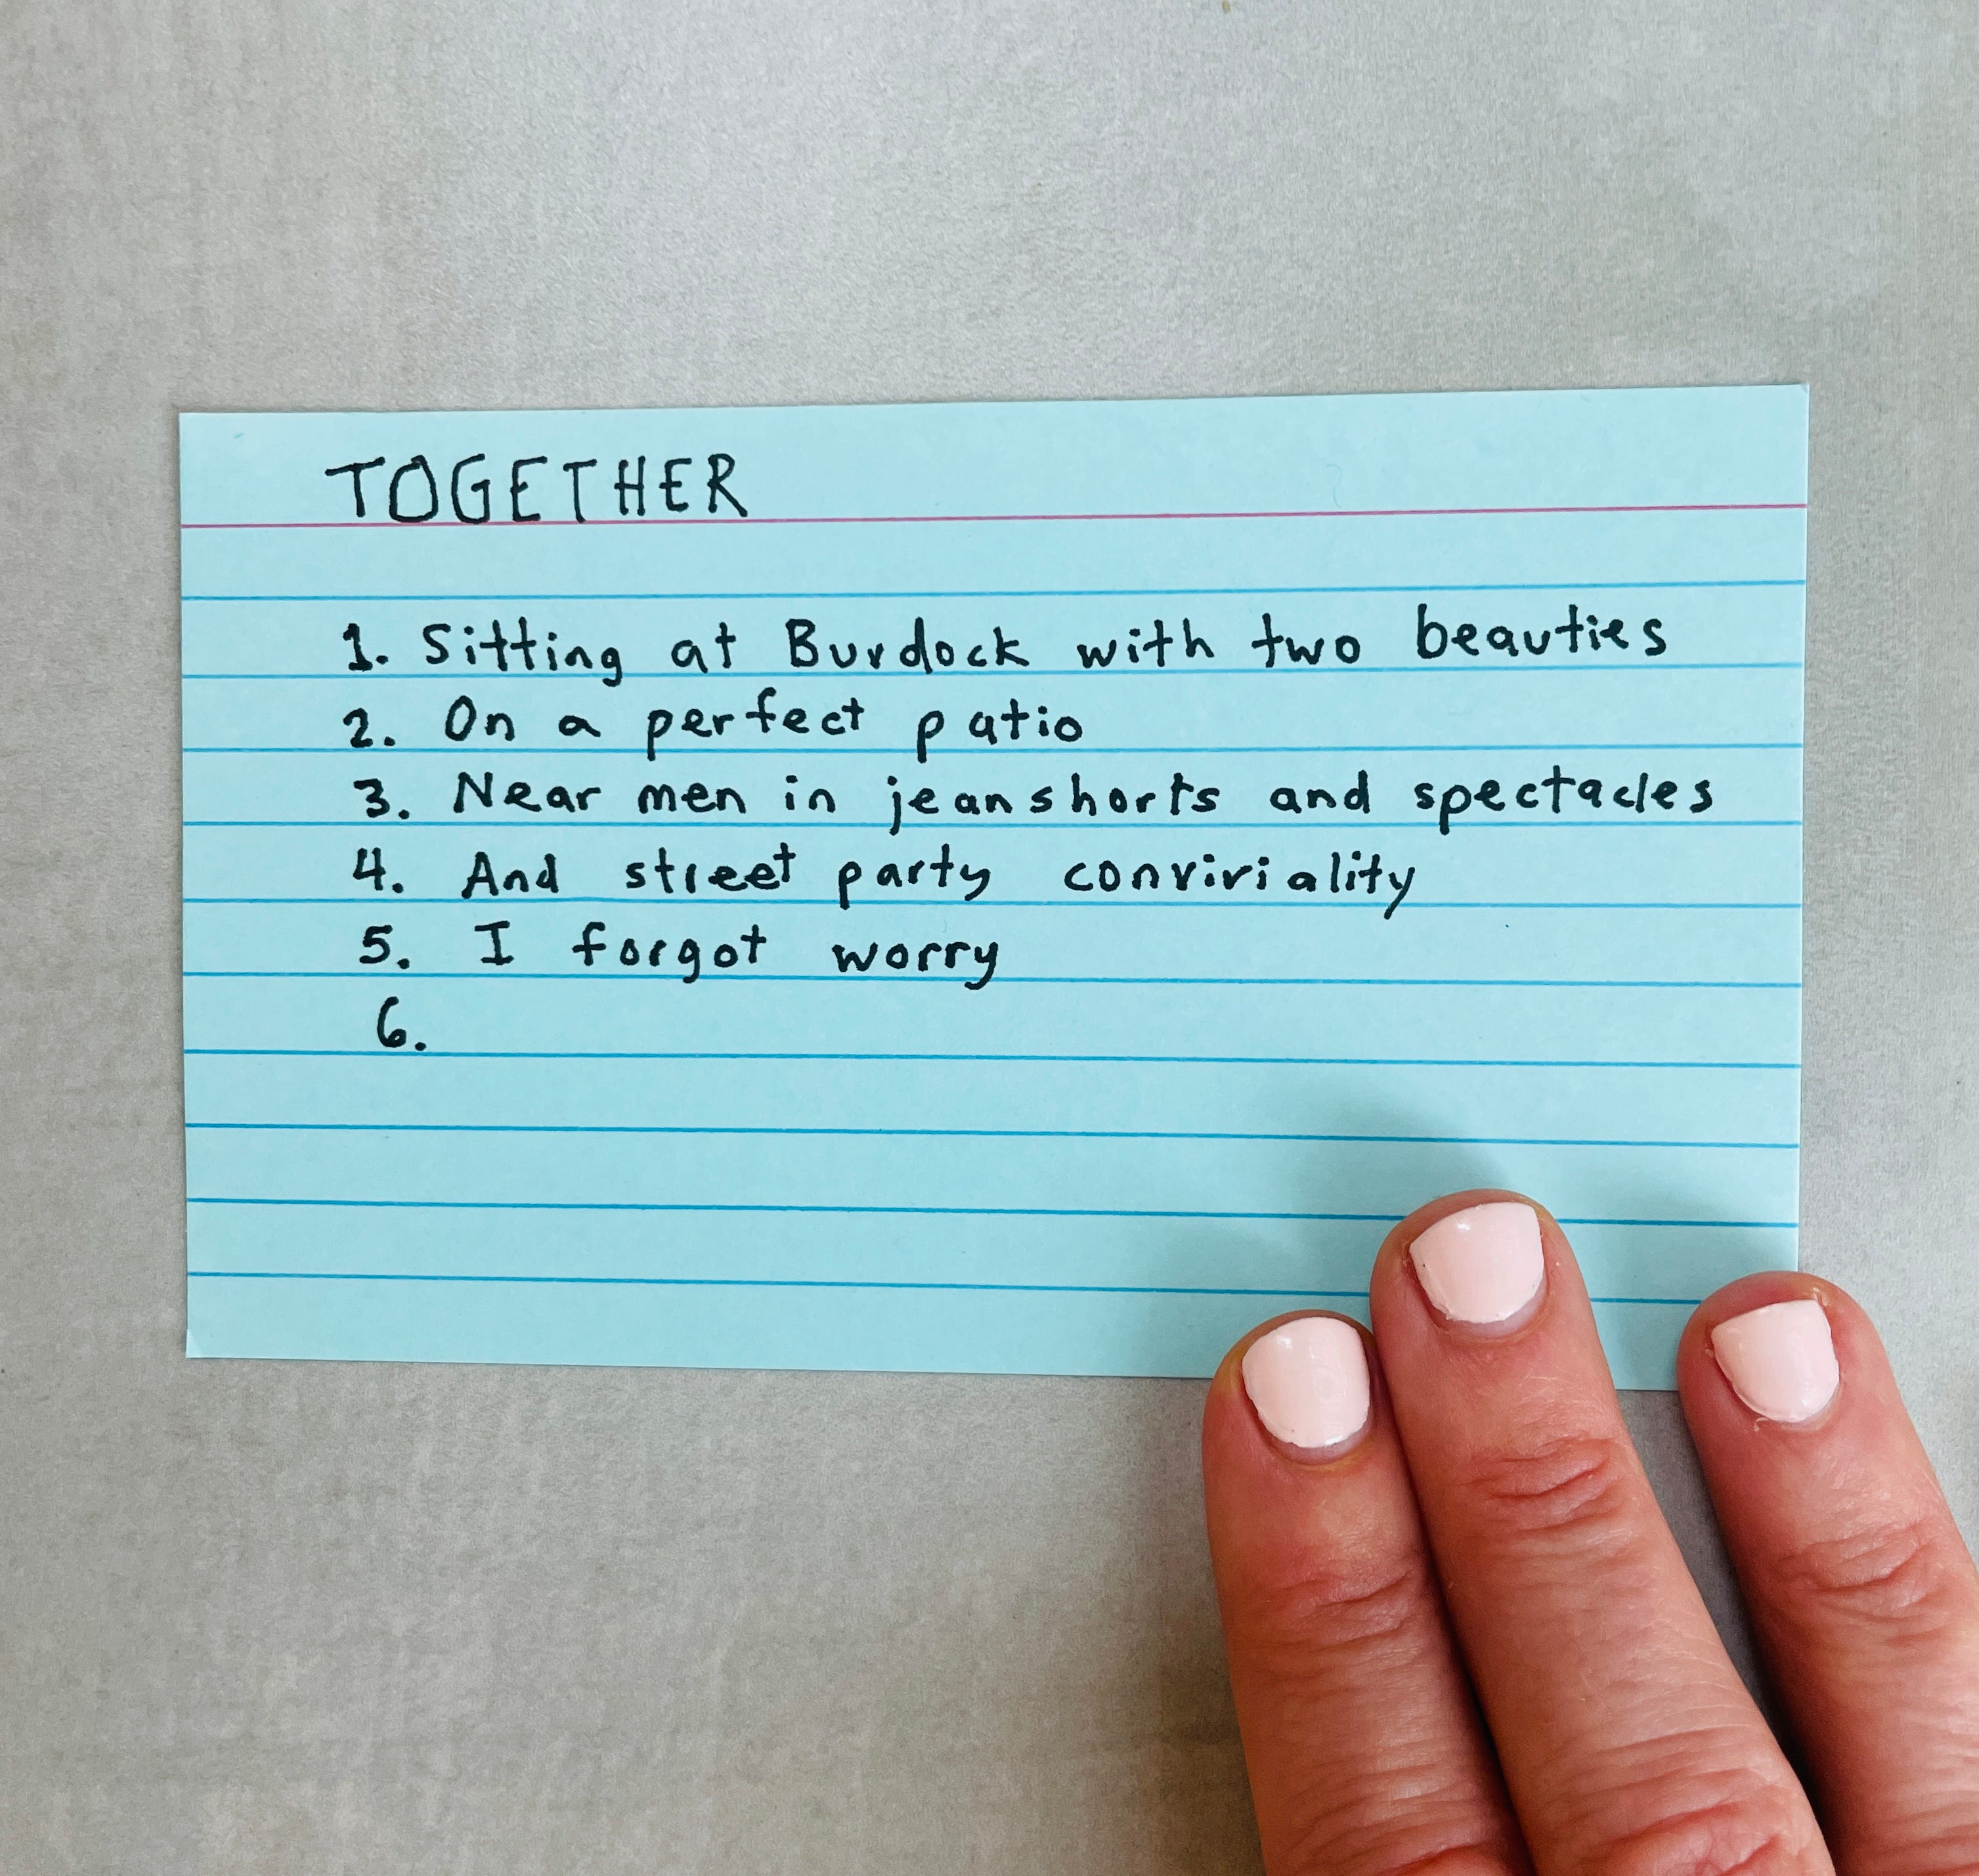 TOGETHER
1. Sitting at Burdock with two beauties
2. On a perfect patio
3. Near men in jeanshorts and spectacles
4. And street party conviviality
5. I forgot worry
6.